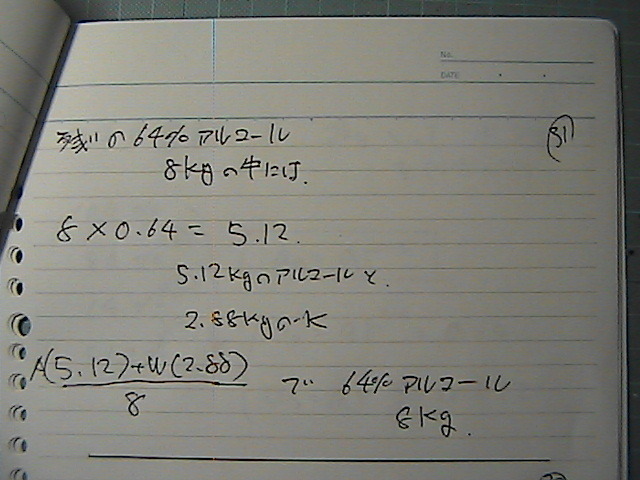 No.
DATE
残りの64%アルコール
31
8kgの中には.
8×0.64=5.12.
5.12kgのアルコールと.
2.88kgの水
A(5.12)+W(2.88)
8
で 64%アルコール
8kg.